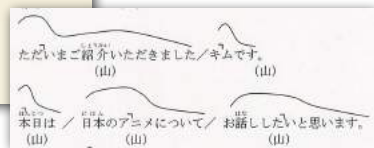 ただいまご紹介いただきました／キムです。
(山) (山)
本日は ／ 日本のアニメについて／ お話ししたいと思います。
(山) (山) (山)